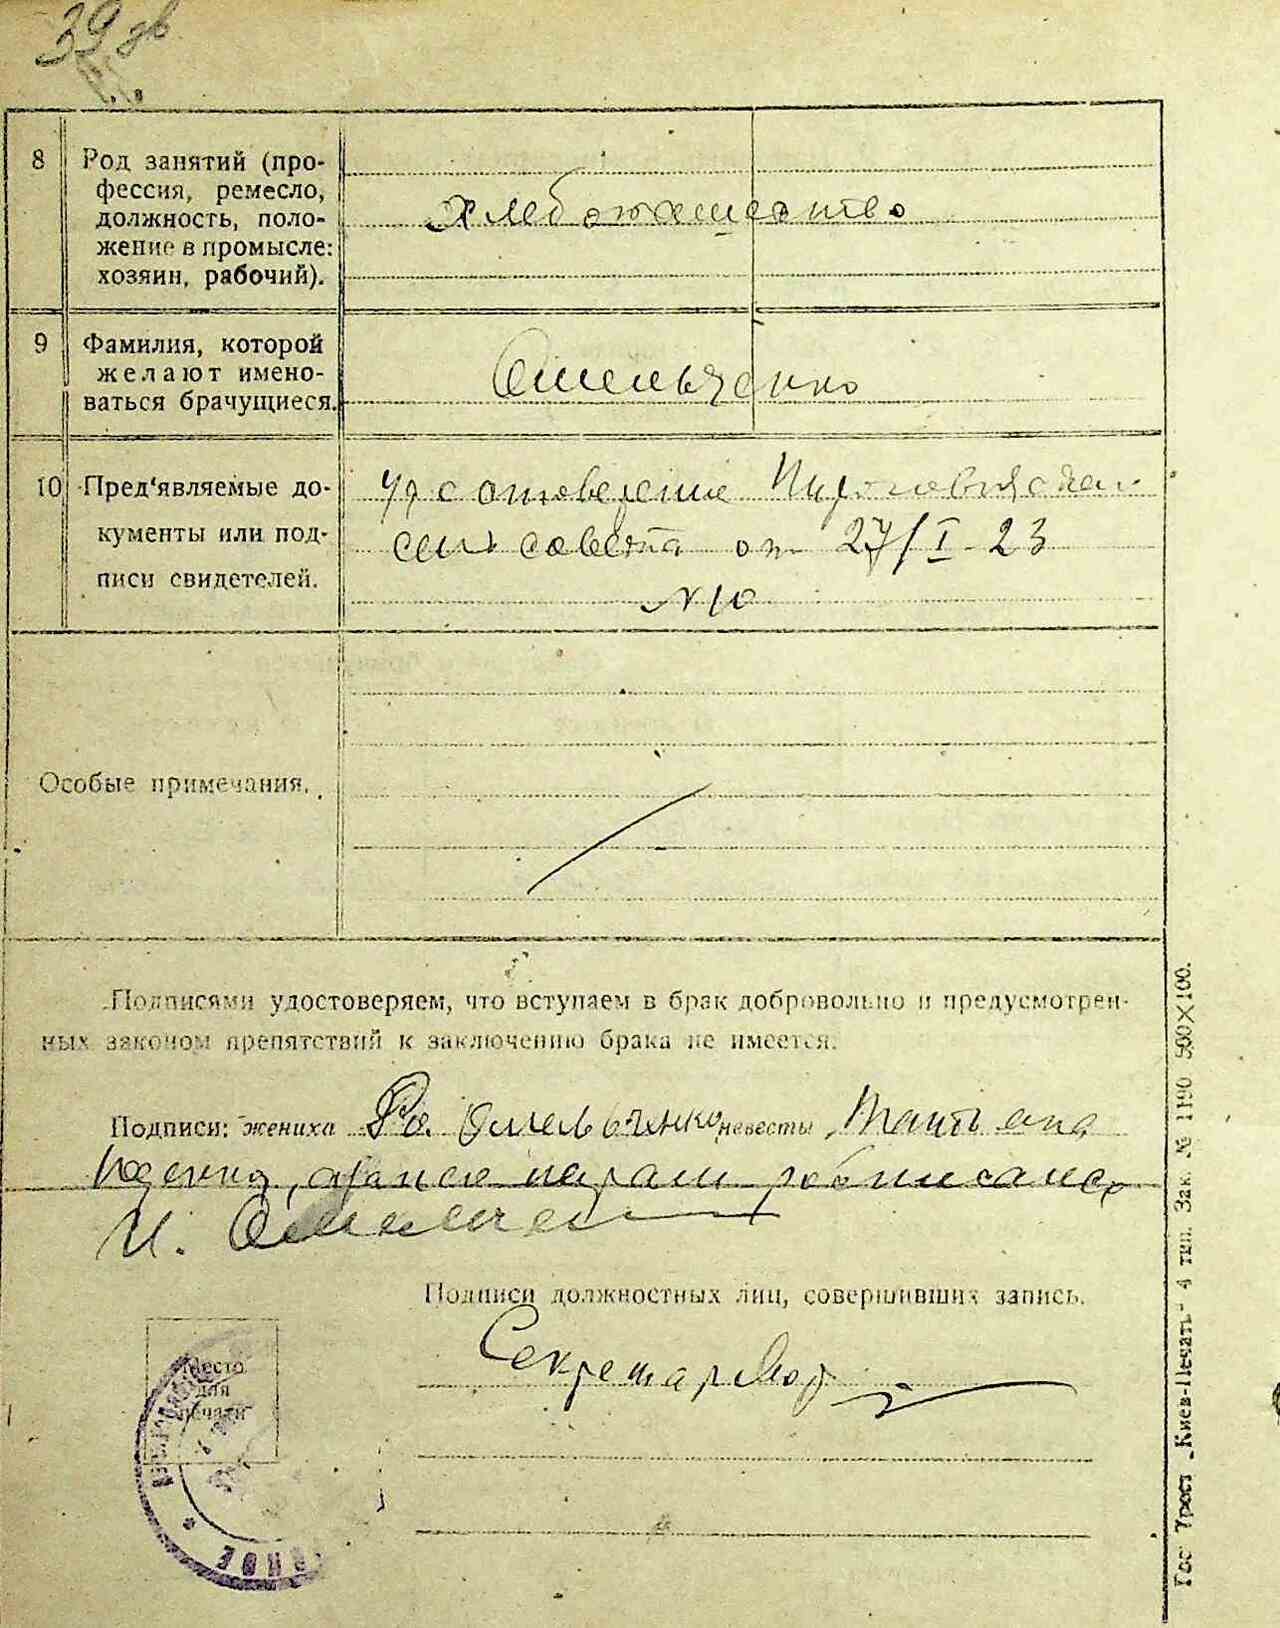 39 зв
8 Род занятий (про-
фессия, ремесло,
должность, поло-
жение в промысле:
хозяин, рабочий).
хлебопашество
9 Фамилия, которой
желают имено-
ваться брачущиеся.
Омельченко
10 Пред'являемые до-
кументы или под-
писи свидетелей.
удостоверение
сельсовета от 27/I 23
№ 10
Особые примечания.
Подписями удостоверяем, что вступаем в брак добровольно и предусмотрен-
ных законом препятствий к заключению брака не имеется.
Подписи: жениха Омельченко невесты
И.
Подписи должностных лиц, совершивших запись.
Секретар
Место
для
печати
Гос. Трест „Киев-Печать" 4 тип. Зак. № 1190 500×100.